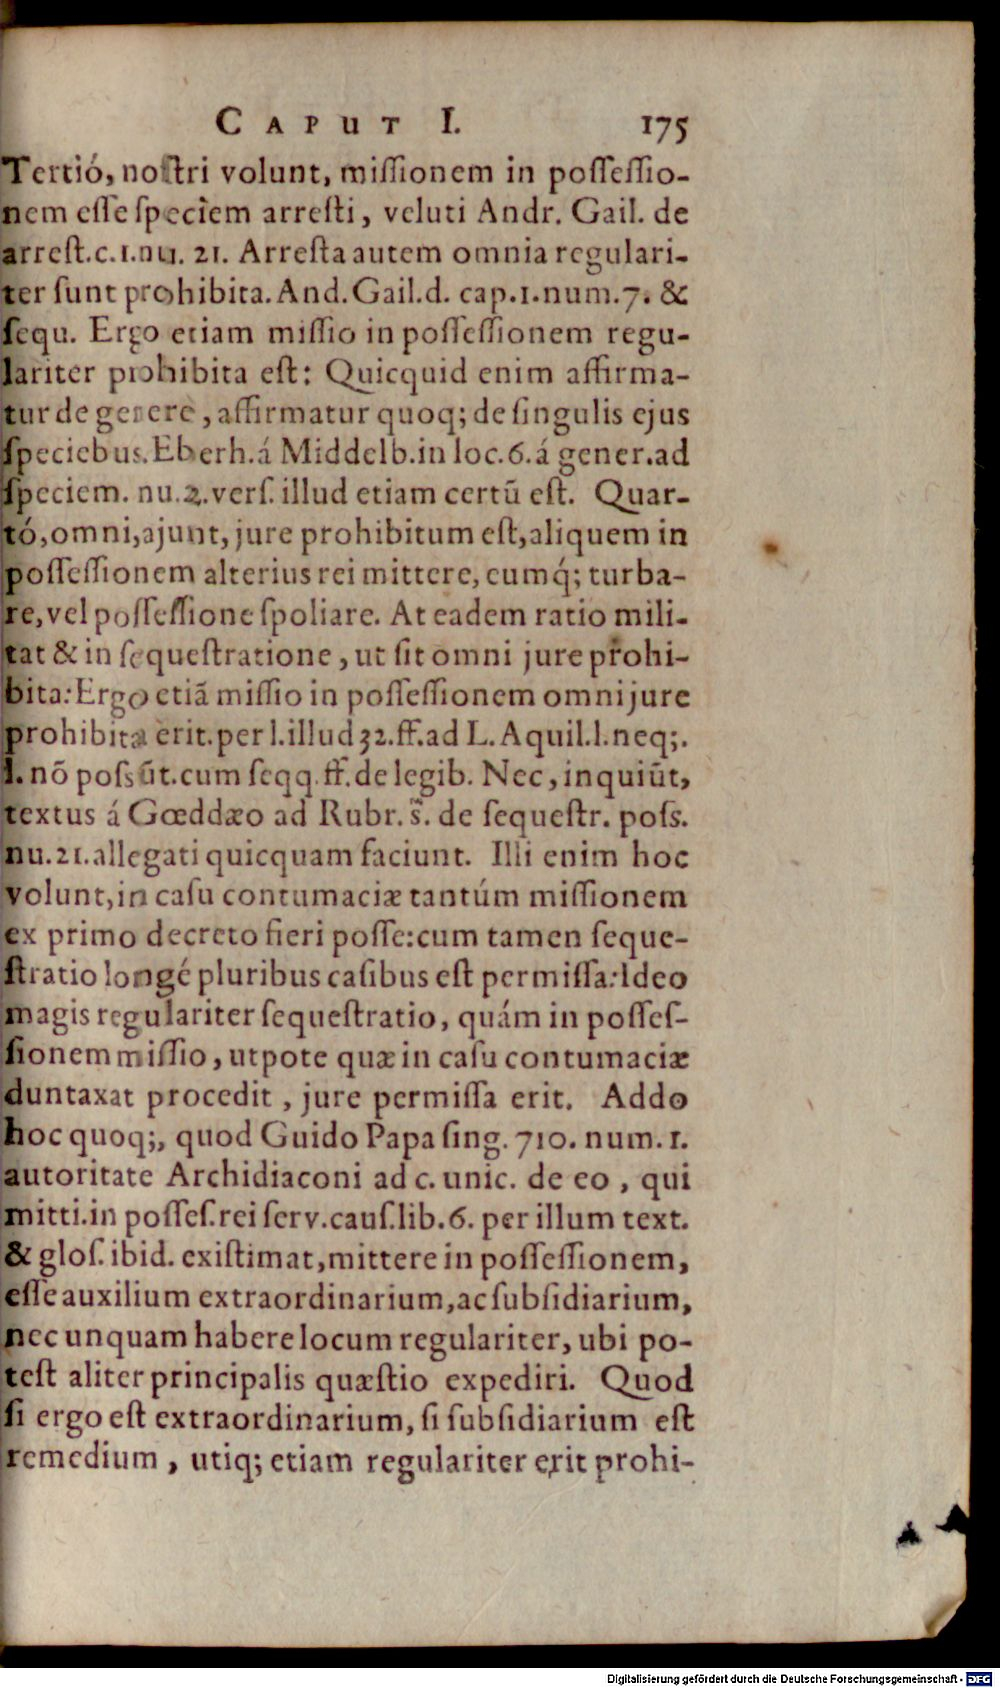 CAPUT I. 175
Tertió, nostri volunt, missionem in possessio-
nem esse speciem arresti, veluti Andr. Gail. de
arrest. c. 1. nu. 21. Arresta autem omnia regulari-
ter sunt prohibita. And. Gail. d. cap. 1. num. 7. &
sequ. Ergo etiam missio in possessionem regu-
lariter prohibita est: Quicquid enim affirma-
tur de genere, affirmatur quoq; de singulis ejus
speciebus. Eberh. á Middelb. in loc. 6. á gener. ad
speciem. nu. 2. vers. illud etiam certũ est. Quar-
tó, omni, ajunt, jure prohibitum est, aliquem in
possessionem alterius rei mittere, eumq́; turba-
re, vel possessione spoliare. At eadem ratio mili-
tat & in sequestratione, ut sit omni jure prohi-
bita: Ergo etiã missio in possessionem omni jure
prohibita erit. per l. illud 32. ff. ad L. Aquil. l. neq;.
l. nõ possũt. cum seqq. ff. de legib. Nec, inquiũt,
textus á Gœddæo ad Rubr. s̃. de sequestr. poss.
nu. 21. allegati quicquam faciunt. Illi enim hoc
volunt, in casu contumaciæ tantúm missionem
ex primo decreto fieri posse: cum tamen seque-
stratio longé pluribus casibus est permissa: Ideo
magis regulariter sequestratio, quám in posses-
sionem missio, utpote quæ in casu contumaciæ
duntaxat procedit, jure permissa erit. Addo
hoc quoq;, quod Guido Papa sing. 710. num. 1.
autoritate Archidiaconi ad c. unic. de eo, qui
mitti. in posses. rei serv. caus. lib. 6. per illum text.
& glos. ibid. existimat, mittere in possessionem,
esse auxilium extraordinarium, ac subsidiarium,
nec unquam habere locum regulariter, ubi po-
test aliter principalis quæstio expediri. Quod
si ergo est extraordinarium, si subsidiarium est
remedium, utiq; etiam regulariter erit prohi-
Digitalisierung gefördert durch die Deutsche Forschungsgemeinschaft - DFG